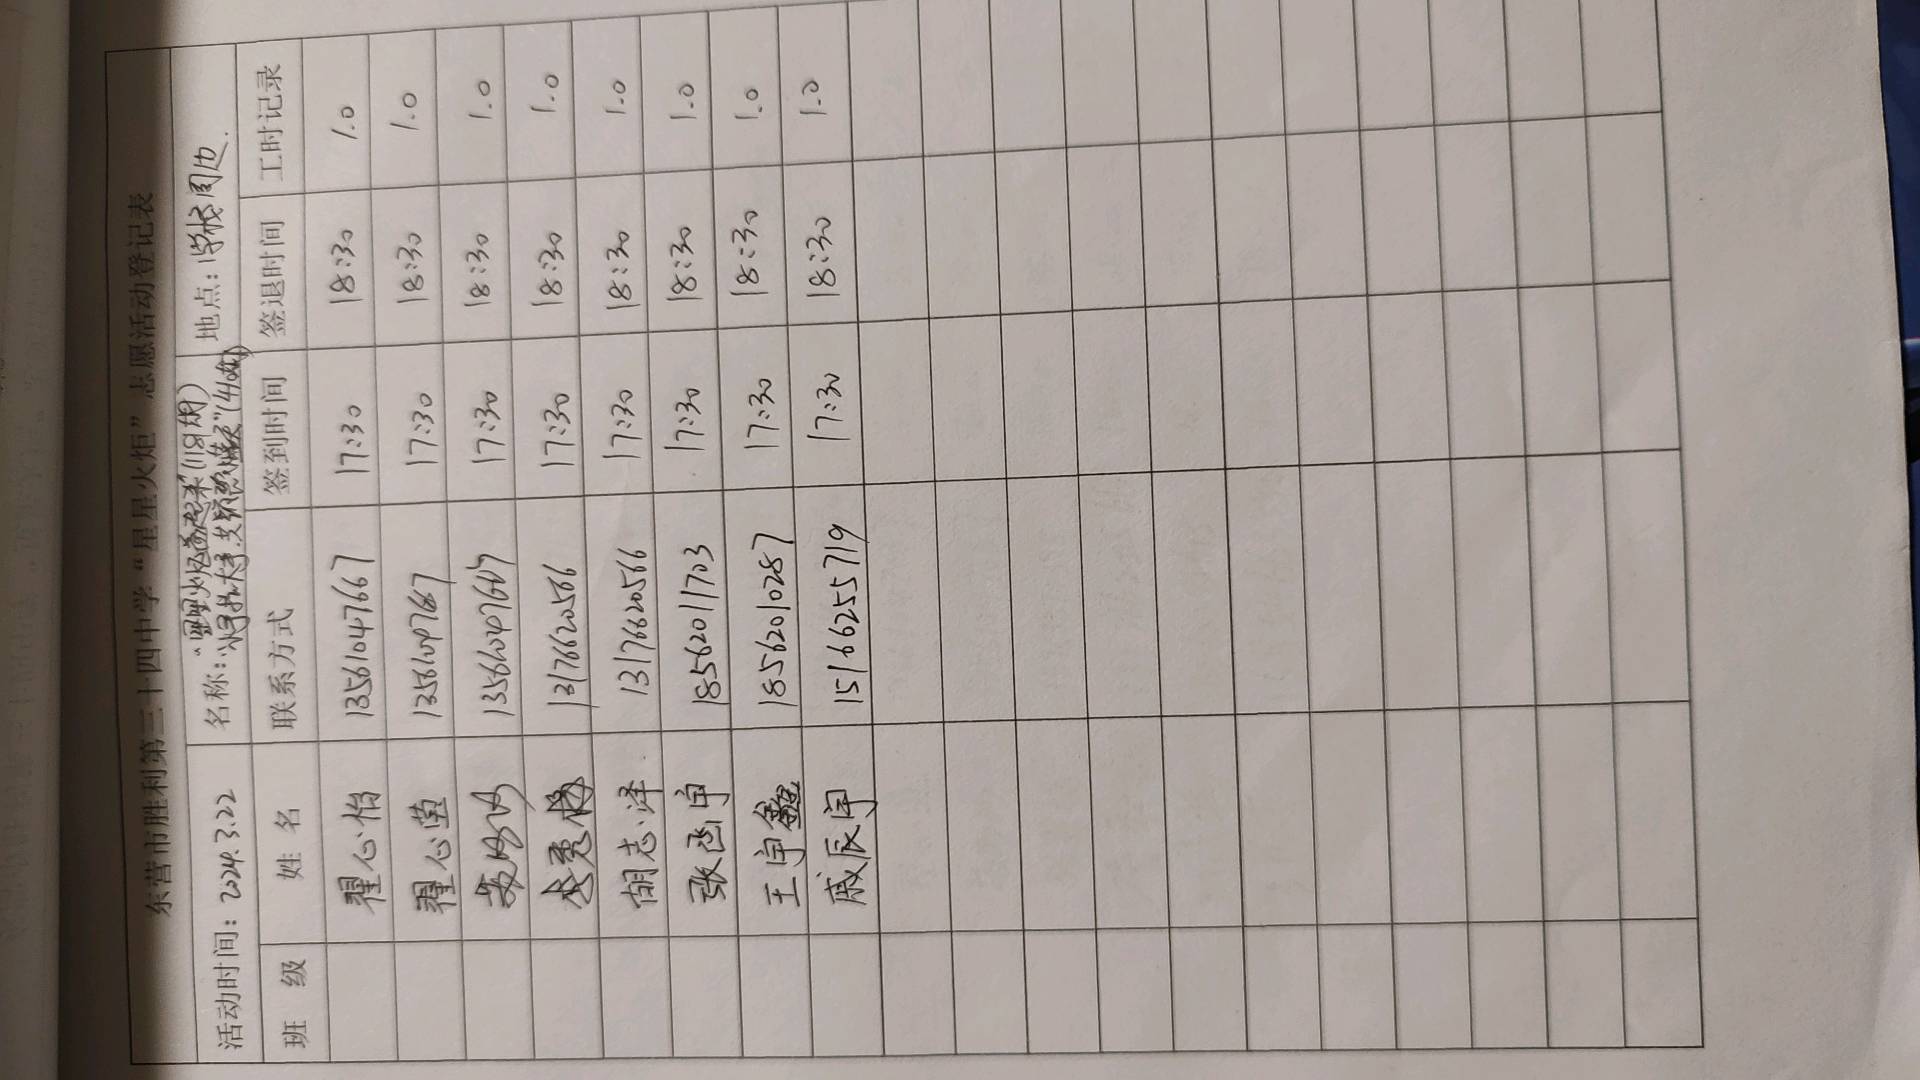 东营市胜利第三十四中学“星星火炬”志愿活动登记表
活动时间：2024.3.22 名称：“星星火炬 (118期) 地点：学校周边
小手拉大手
班 级 姓 名 联系方式 签到时间 签退时间 工时记录
翟心怡 13561047667 17:30 18:30 1.0
翟心 17:30 18:30 1.0
17:30 18:30 1.0
13176620566 17:30 18:30 1.0
胡志泽 13176620566 17:30 18:30 1.0
张函宇 18562011703 17:30 18:30 1.0
王宇鑫 18562010287 17:30 18:30 1.0
戚辰宇 15166255719 17:30 18:30 1.0